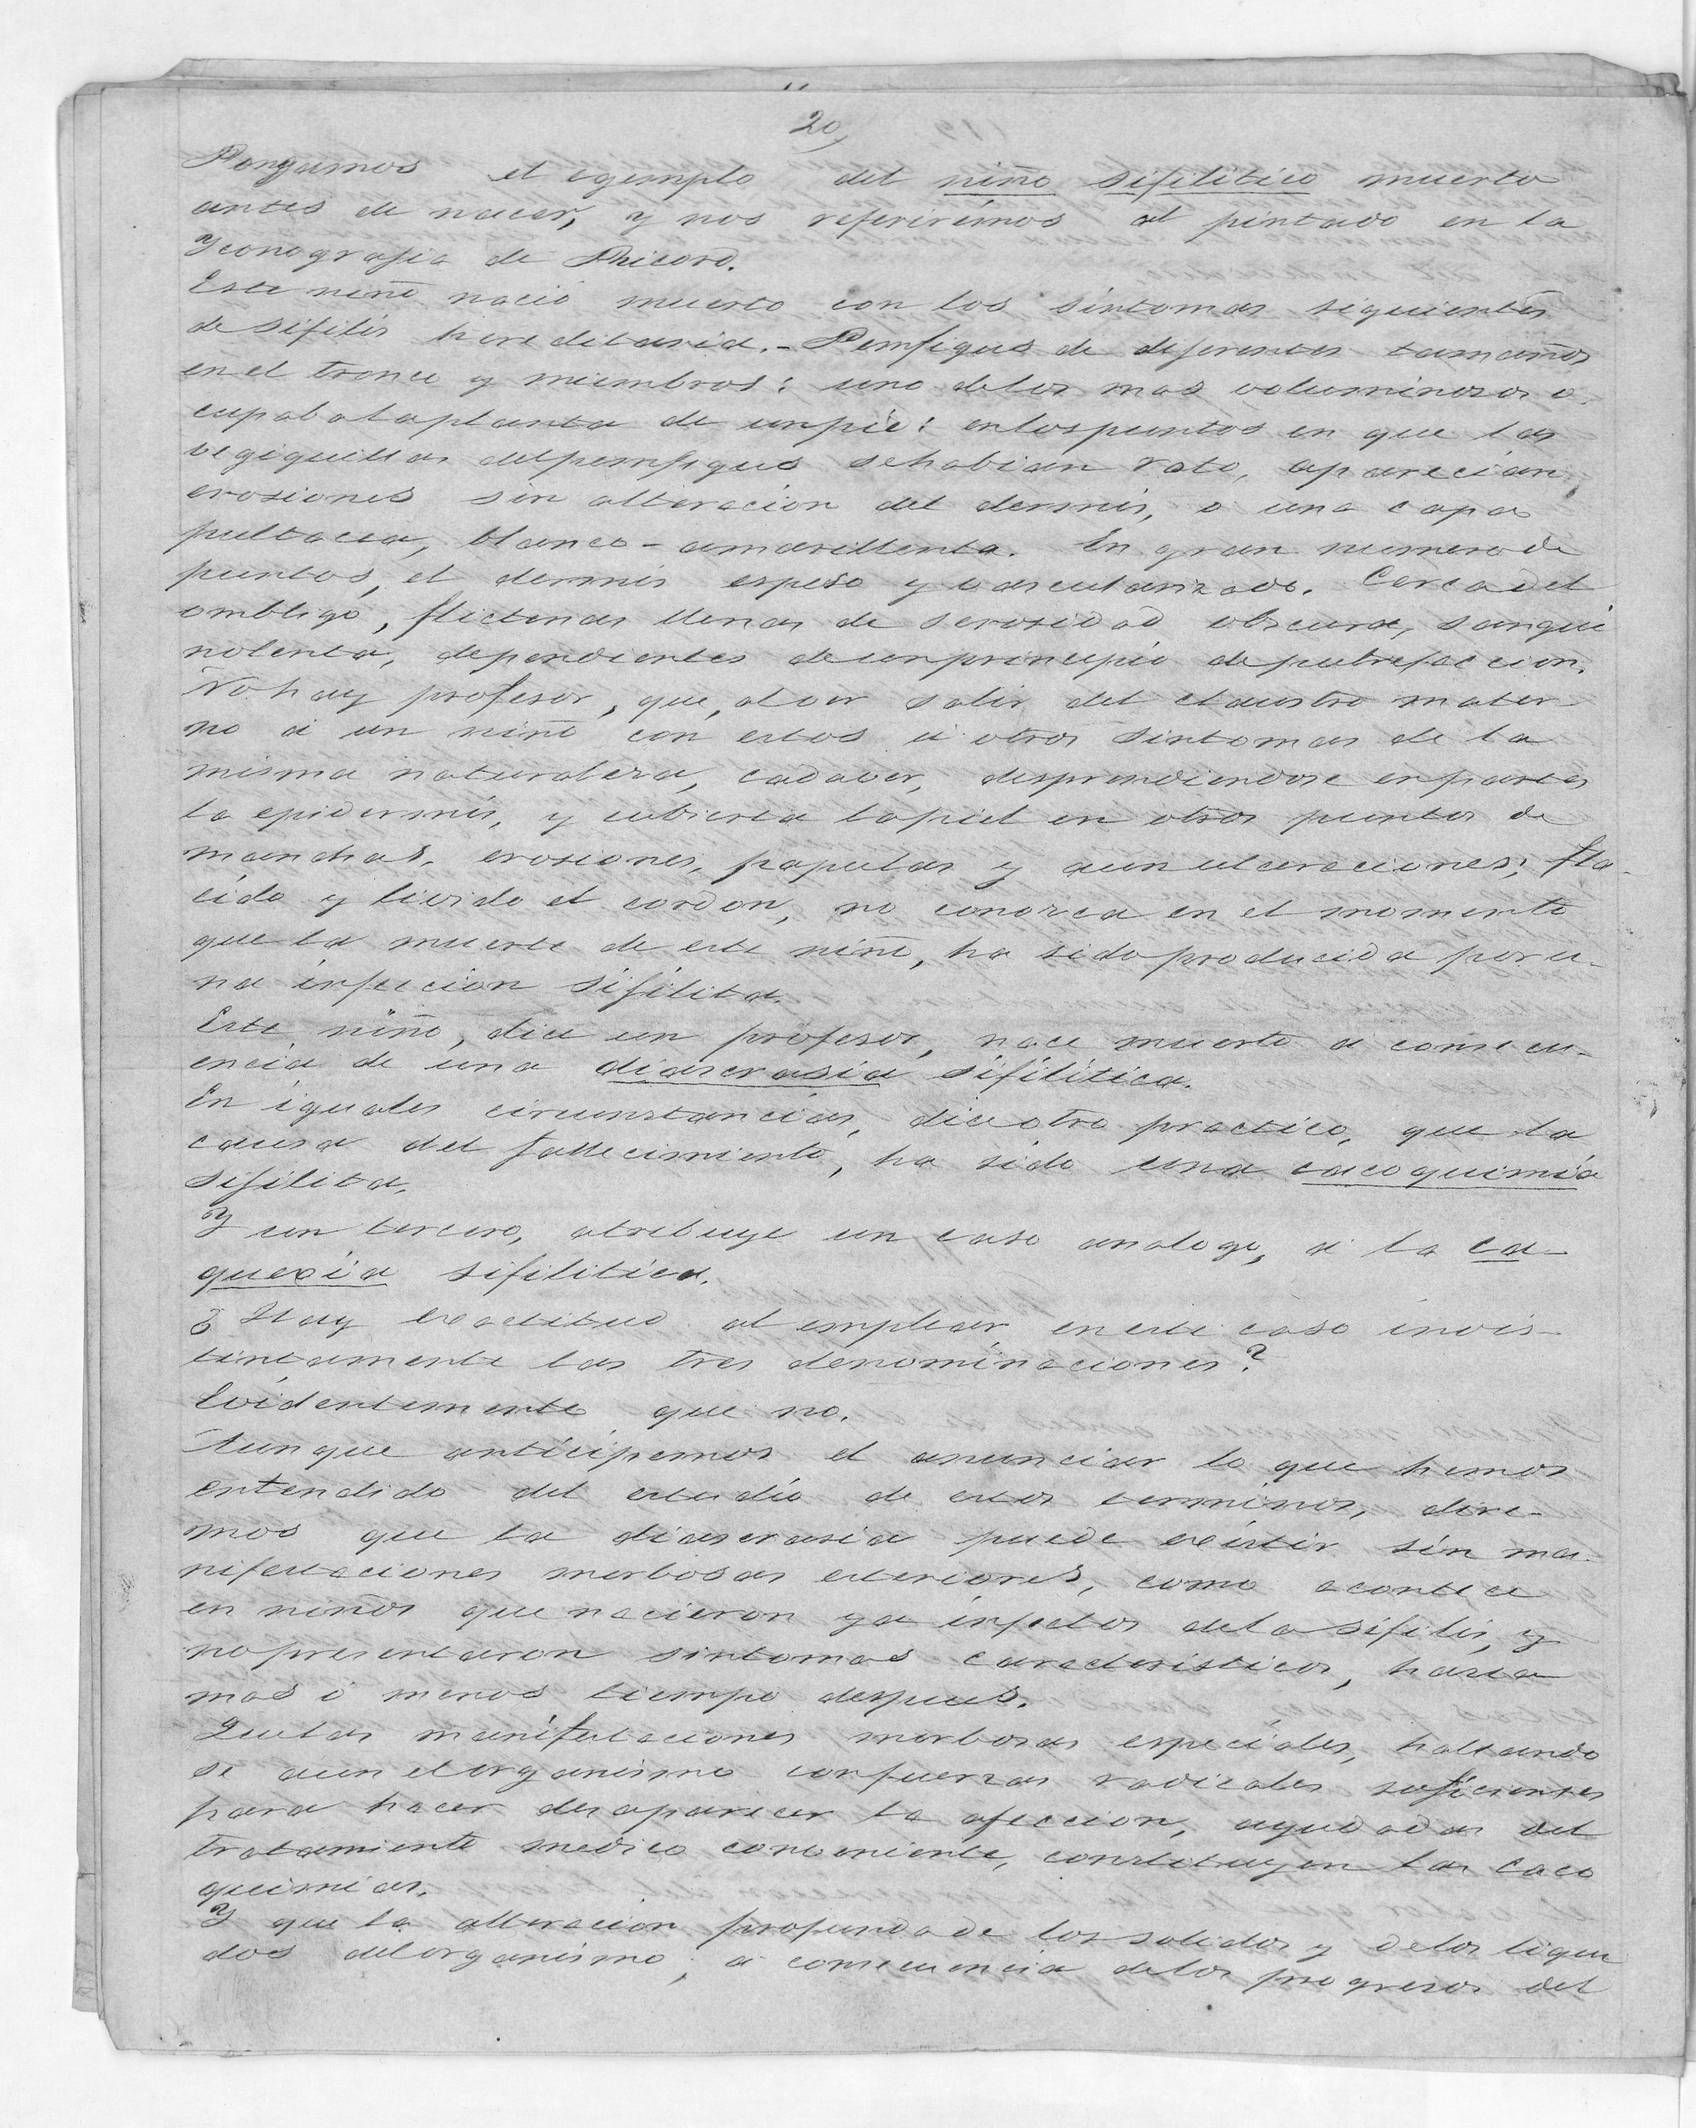 20,
Pongamos el egemplo del niño sifilitico muerto
antes de nacer, y nos referirémos al pintado en la
Yconografia de Rhicord.
Este niño nació muerto con los síntomas siguientes
de sifilis hereditaria. - Pemfigus de diferentes tamaños
en el tronco y miembros: uno de los mas voluminosos o-
cupaba la planta de un pié: en los puntos en que las
vegiguillas del pemfigus se habian roto, aparecían
erosiones sin alteracion del dermis, o una capa
pultacea, blanco-amarillenta. En gran numero de
puntos, el dermis espeso y vascularizado. Cerca del
ombligo, flictenas llenas de serosidad obscura, sangui
nolenta, dependientes de un principio de putrefaccion.
No hay profesor, que, al ver salir del claustro mater-
no á un niño con estos ú otros sintomas de la
misma naturaleza, cadaver, desprendiendose en partes
la epidermis, y cubierta la piel en otros puntos de
manchas, erosiones, papulas y aun ulceraciones; fla-
cido y livido el cordon, no conozca en el momento
que la muerte de este niño, ha sido producida por u-
na infeccion sifilita.
Este niño, dice un profesor, nace muerto a consecu-
encia de una diascrasia sifilitica.
En iguales circunstancias, dice otro practico, que la
causa del fallecimiento, ha sido una cacoquimia
sifilita.
Y un tercero, atribuye un caso analogo, á la ca-
quexia sifilitica.
¿Hay exactitud al emplear en este caso indis-
tintamente las tres denominaciones?
Evidentemente que no.
Aunque anticipemos el anunciar lo que hemos
entendido del estudio de estos terminos, dire-
mos que la diascrasia puede existir sin ma-
nifestaciones morbosas esteriores, como acontece
en niños que nacieron ya infectos de la sifilis, y
no presentaron sintomas caracteristicos, hasta
mas ó menos tiempo despues.
Que las manifestaciones morbosas especiales, hallando
se aun el organismo con fuerzas radicales suficientes
para hacer desaparicer la afeccion, ayudadas del
tratamiento medico conveniente, constituyen las caco
quimias.
Y que la alteracion profunda de los solidos y de los liqui
dos del organismo, a consecuencia de los progresos del